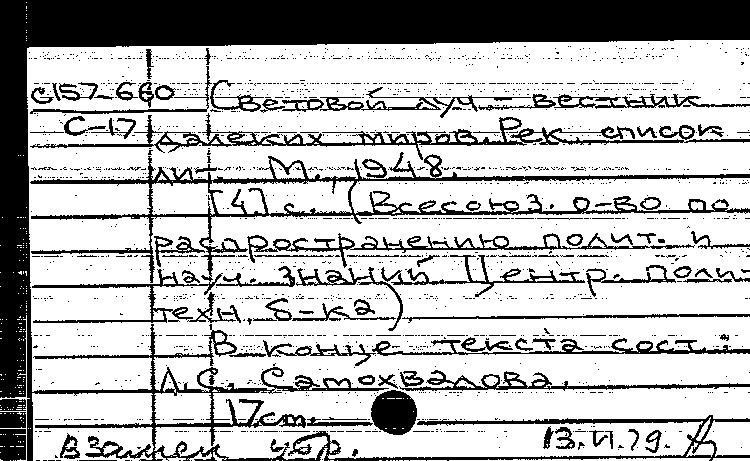 С157-660 Световой луч – вестник
С-17 далеких миров. Рек. список
лит. М., 1948.
[4] с. (Всесоюз. о-во по
распространению полит. и
науч. знаний. Центр. полит-
техн. б-ка).
В конце текста сост.:
Л.С. Самохвалова.
17 см.
Взамен убр. 13.VI.79.